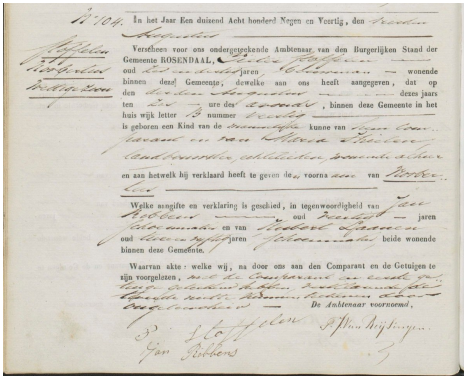 No 104.
Stoffelen
Norbertus
In het Jaar Een duizend Acht honderd Negen en Veertig, den derden
Augustus
Verscheen voor ons ondergeteekende Ambtenaar van den Burgerlijken Stand der
Gemeente ROSENDAAL, Peter Stoffelen
oud jaren wonende
binnen deze Gemeente, dewelke aan ons heeft aangegeven, dat op
den derden Augustus dezes jaars
ten zes ure des avonds, binnen deze Gemeente in het
huis wijk letter B nummer veertig
is geboren een Kind van de mannelijke kunne van hem com-
parant en van Maria
landbouwster, echtelieden, wonende alhier
en aan hetwelk hij verklaard heeft te geven den voornaam van Norber-
tus
Welke aangifte en verklaring is geschied, in tegenwoordigheid van Jan
Robbens oud veertig jaren
schoenmaker en van Hubert Laanen
oud jaren schoenmaker beide wonende
binnen deze Gemeente.
Waarvan akte: welke wij, na door ons aan den Comparant en de Getuigen te
zijn voorgelezen, met de Comparant en eerste ge-
tuige geteekend hebben, verklarende de
tweede niet te kunnen teekenen door
ongeleerdheid
De Ambtenaar voornoemd,
P Stoffelen
Jan Robbens